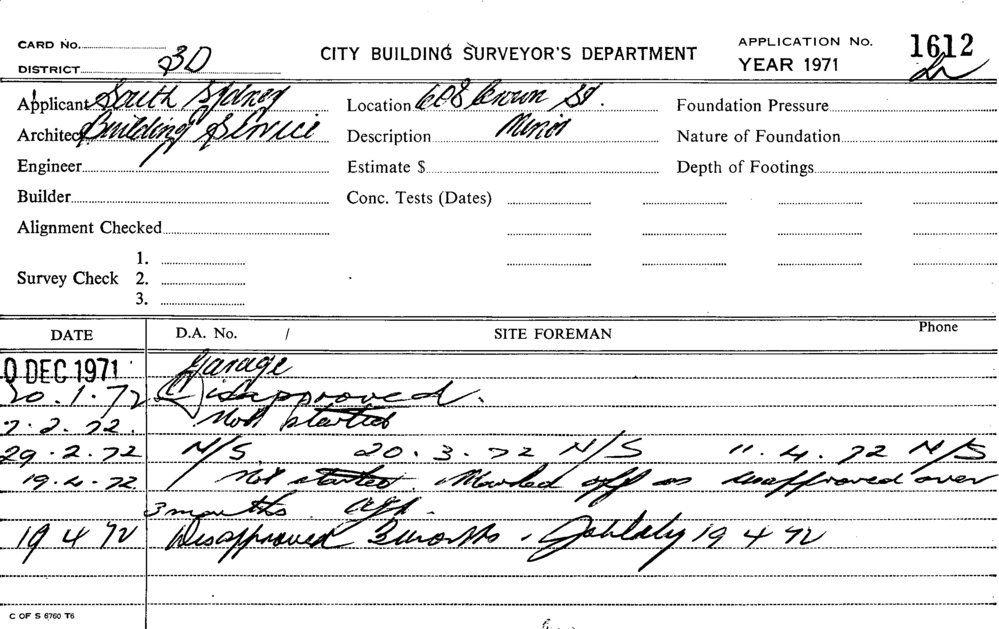 CARD No.
DISTRICT 3D
CITY BUILDING SURVEYOR'S DEPARTMENT
APPLICATION No. 1612
YEAR 1971
Applicant South Sydney
Architect Building Service
Engineer
Builder
Alignment Checked
Survey Check 1.
2.
3.
Location 608 Crown St.
Description Minor
Estimate $
Conc. Tests (Dates)
Foundation Pressure
Nature of Foundation
Depth of Footings
DATE D.A. No. / SITE FOREMAN Phone
0 DEC 1971 Garage
20.1.72 Disapproved.
7.2.72. Not started
29.2.72 N/S. 20.3.72 N/S 11.4.72 N/S
19.4.72 Not started. Marked off as disapproved over
3 months ago.
19 4 72 Disapproved 3 months. 19 4 72
C OF S 6760 T6